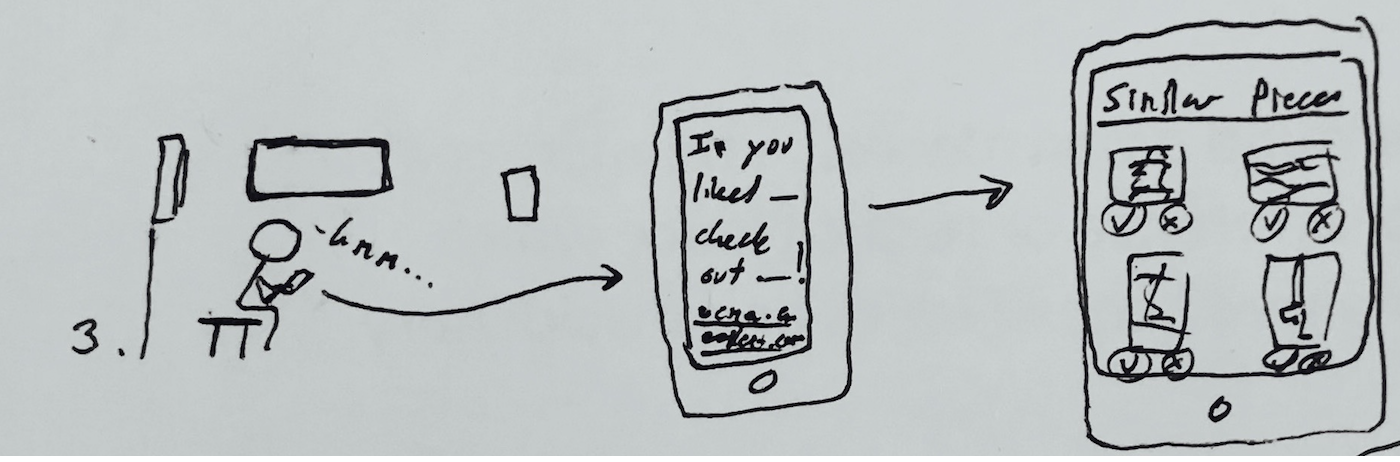 3.
hmm...
If you
liked _
check
out _!
Similar Pieces